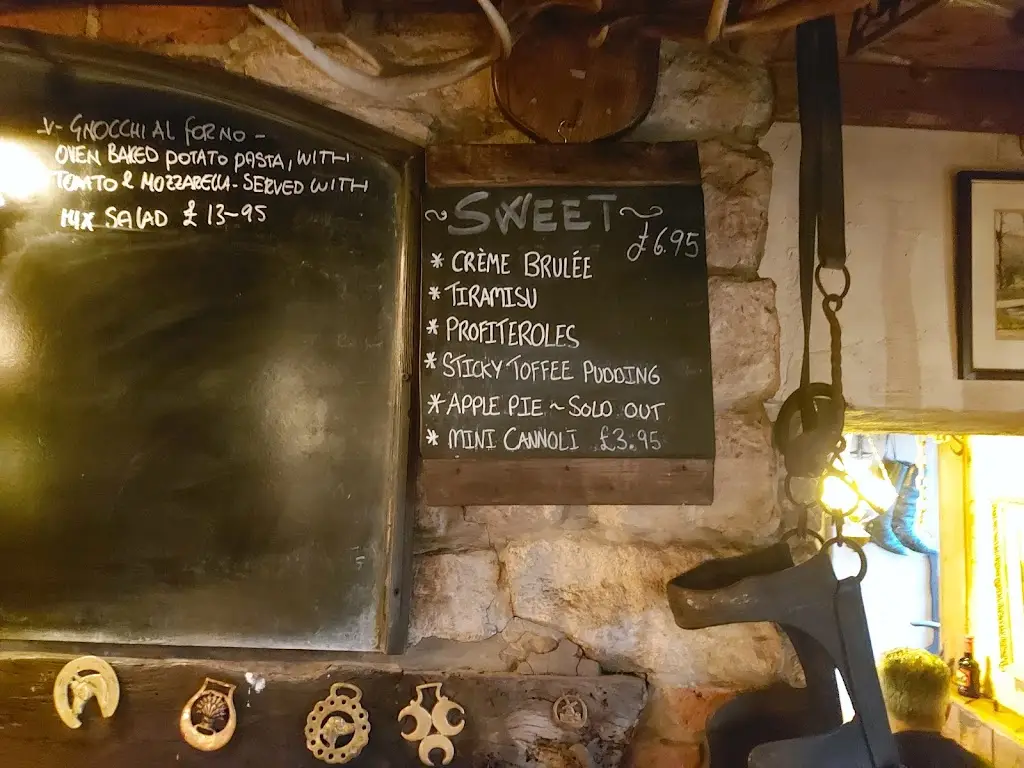 -V- GNOCCHI AL FORNO -
OVEN BAKED POTATO PASTA, WITH
TOMATO & MOZZARELLA - SERVED WITH
MIX SALAD £13-95
~ SWEET ~
£6.95
* CRÈME BRULÉE
* TIRAMISU
* PROFITEROLES
* STICKY TOFFEE PUDDING
* APPLE PIE ~ SOLD OUT
* MINI CANNOLI £3.95